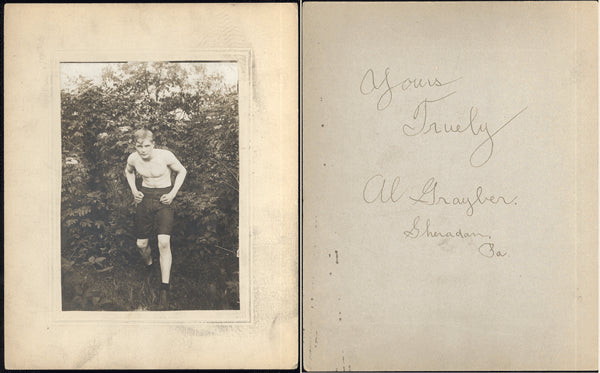 Yours
Truely
Al Grayber.
Sheradan,
Pa.